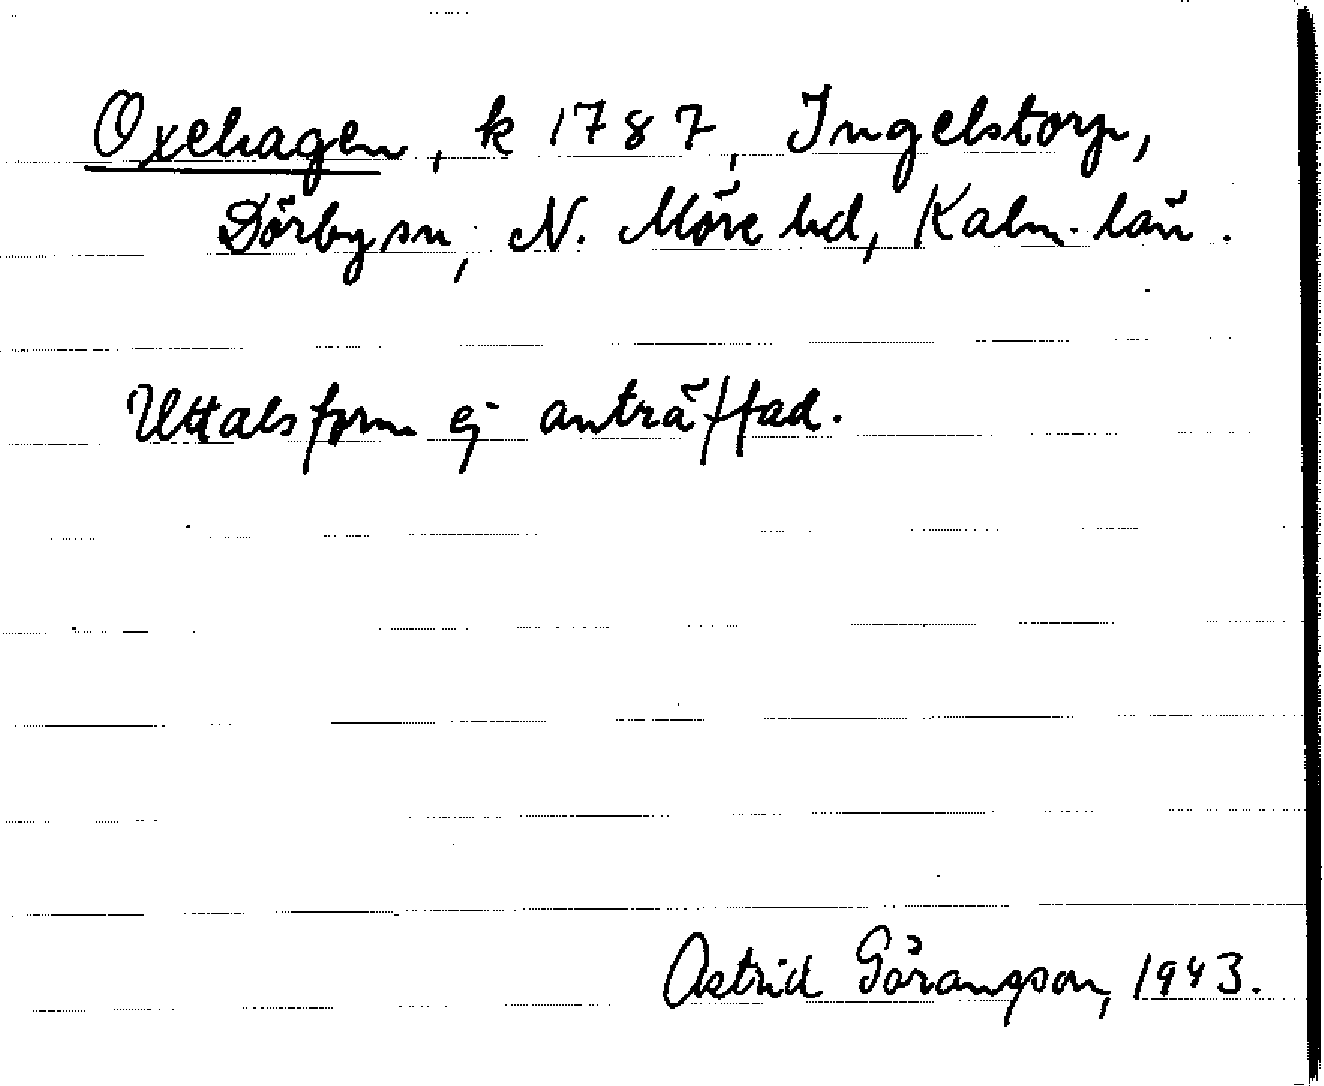 Oxehagen, k 1787, Ingelstorp,
Dörby sn, N. Möre hd, Kalm. län.
Uttalsform ej anträffad.
Astrid Göransson, 1943.